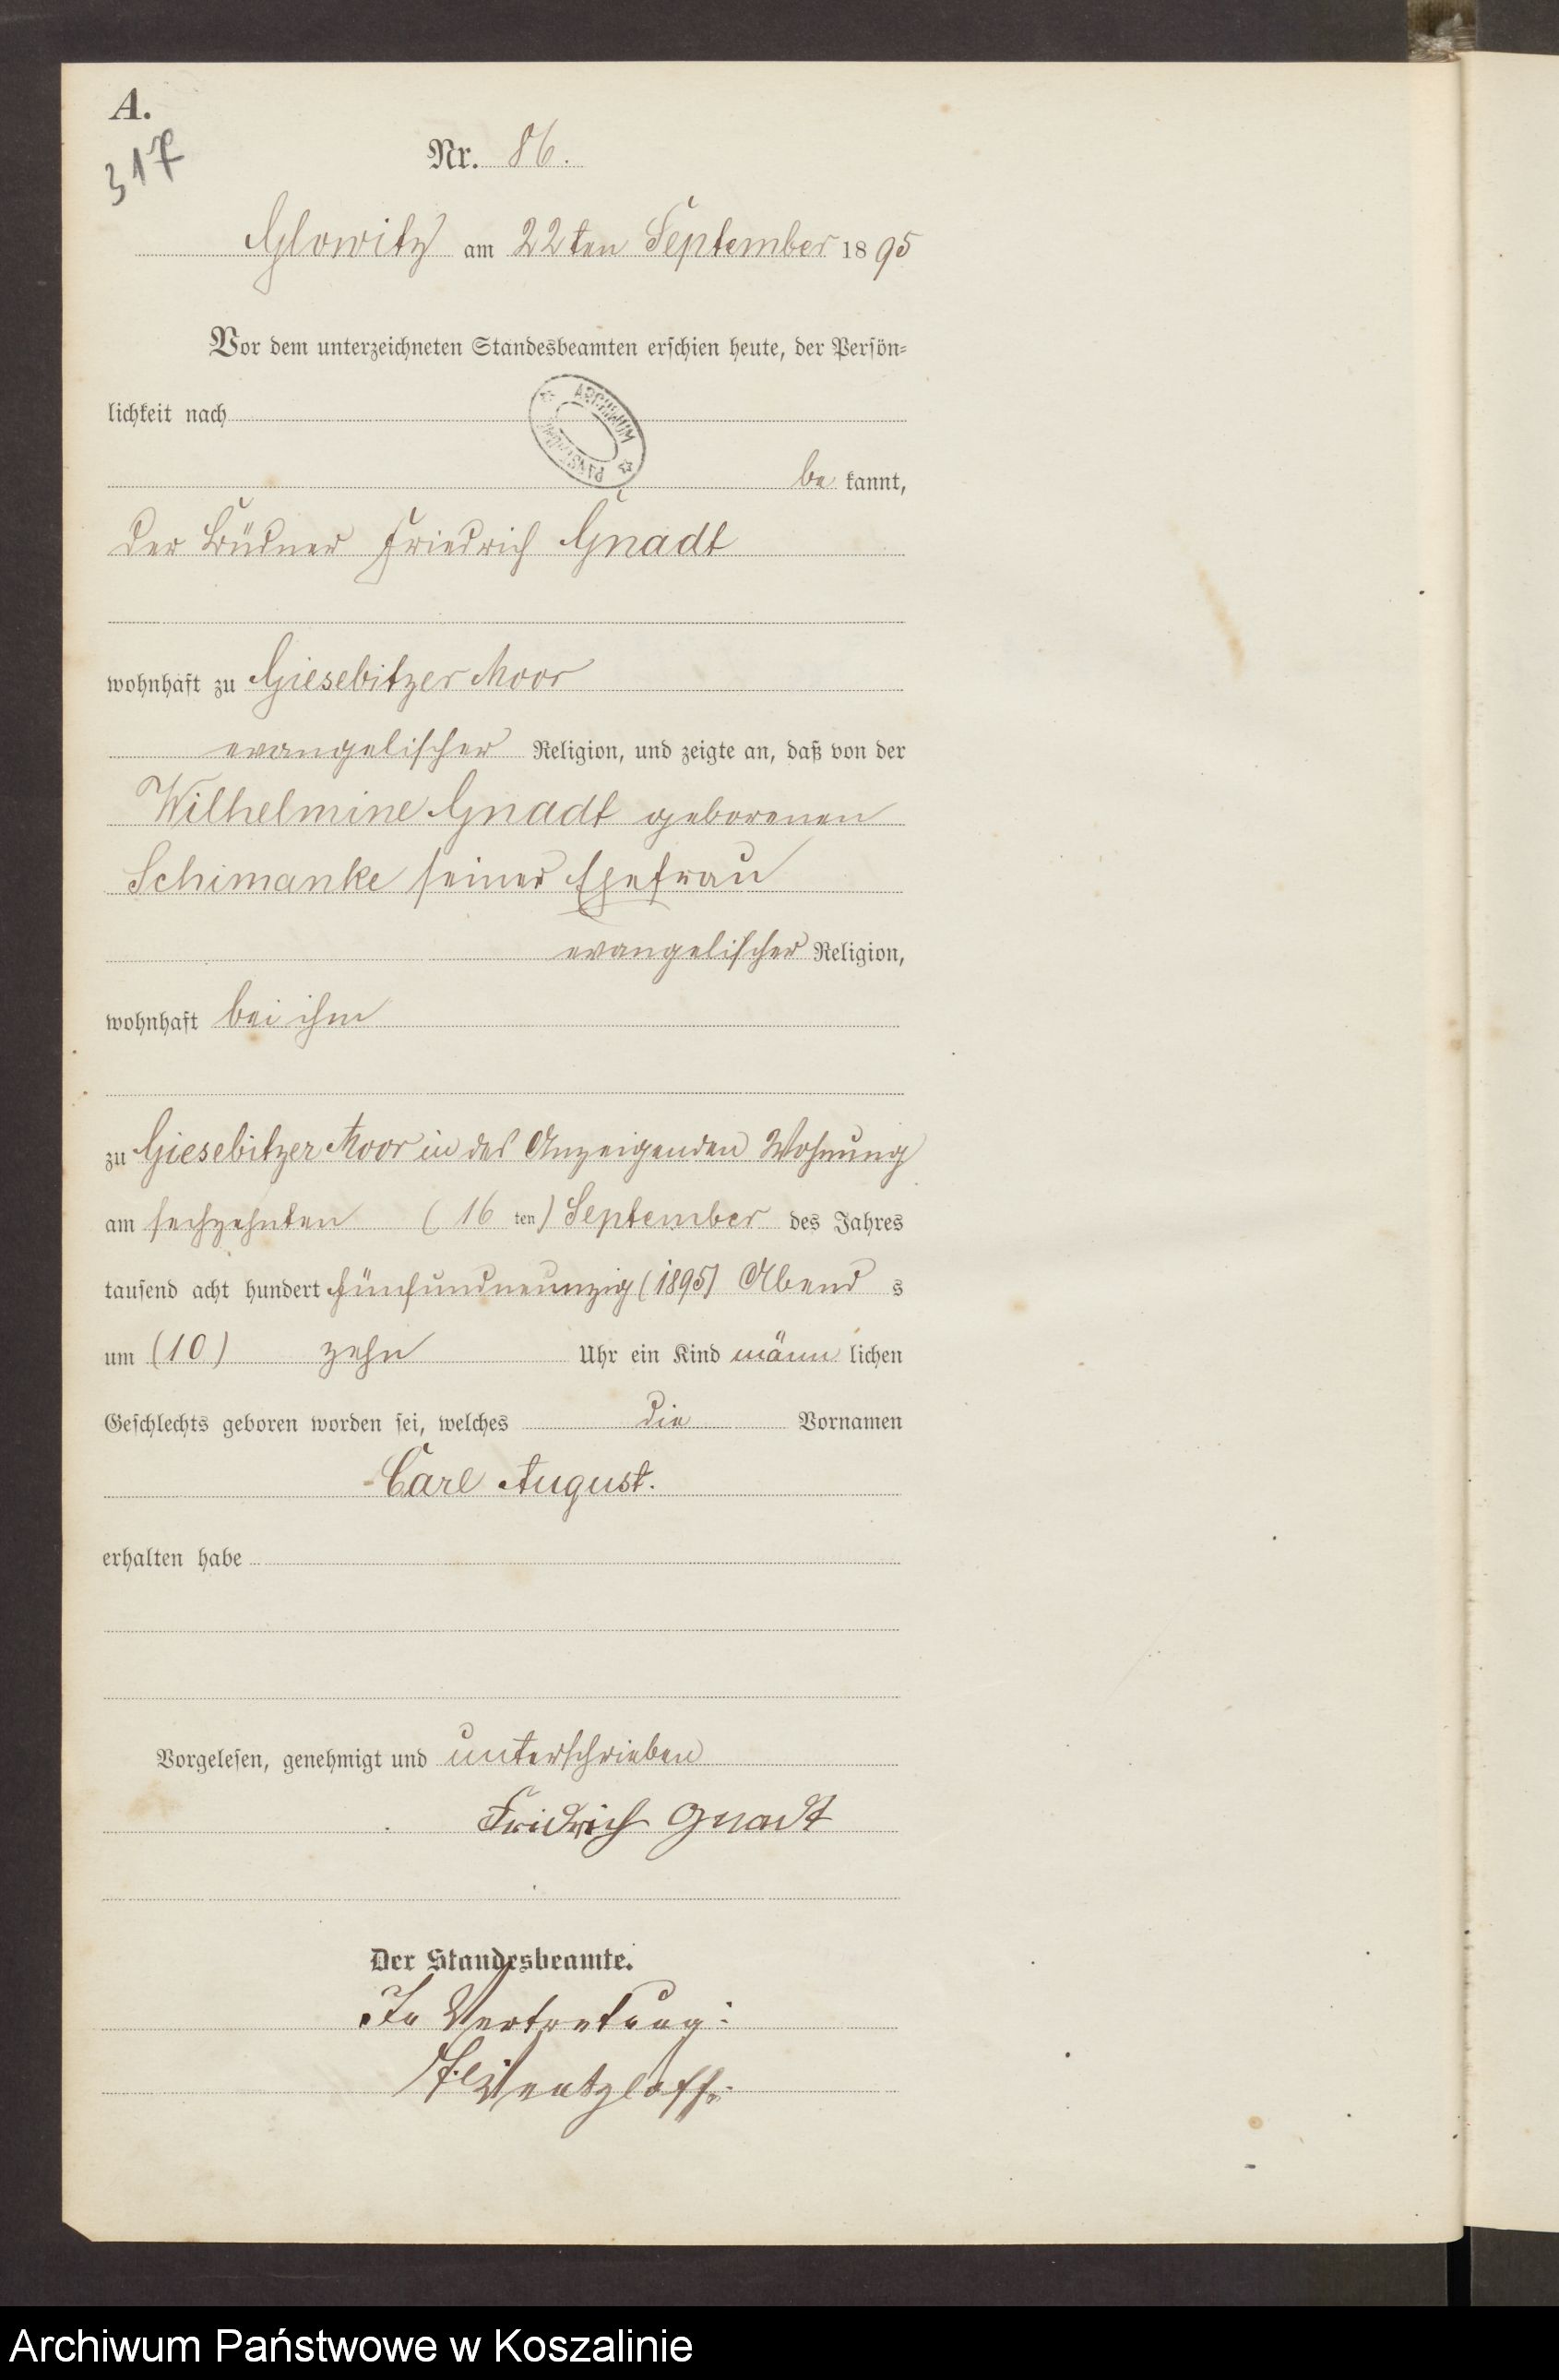 A.
317
Nr. 86.
Glowitz am 22ten September 1895
Vor dem unterzeichneten Standesbeamten erschien heute, der Persön-
lichkeit nach
ARCHIWUM PAŃSTWOWE
be kannt,
der Büdner Friedrich Gnadt
wohnhaft zu Giesebitzer Moor
evangelischer Religion, und zeigte an, daß von der
Wilhelmine Gnadt geborenen
Schimanke seiner Ehefrau
evangelischer Religion,
wohnhaft bei ihm
zu Giesebitzer Moor in des Anzeigenden Wohnung
am sechzehnten (16 ten) September des Jahres
tausend acht hundert fünfundneunzig (1895) Abend s
um (10) zehn Uhr ein Kind männ lichen
Geschlechts geboren worden sei, welches die Vornamen
Carl August.
erhalten habe
Vorgelesen, genehmigt und unterschrieben
Fridrich Gnadt
Der Standesbeamte.
In Vertretung:
Wentzlaff.
Archiwum Państwowe w Koszalinie